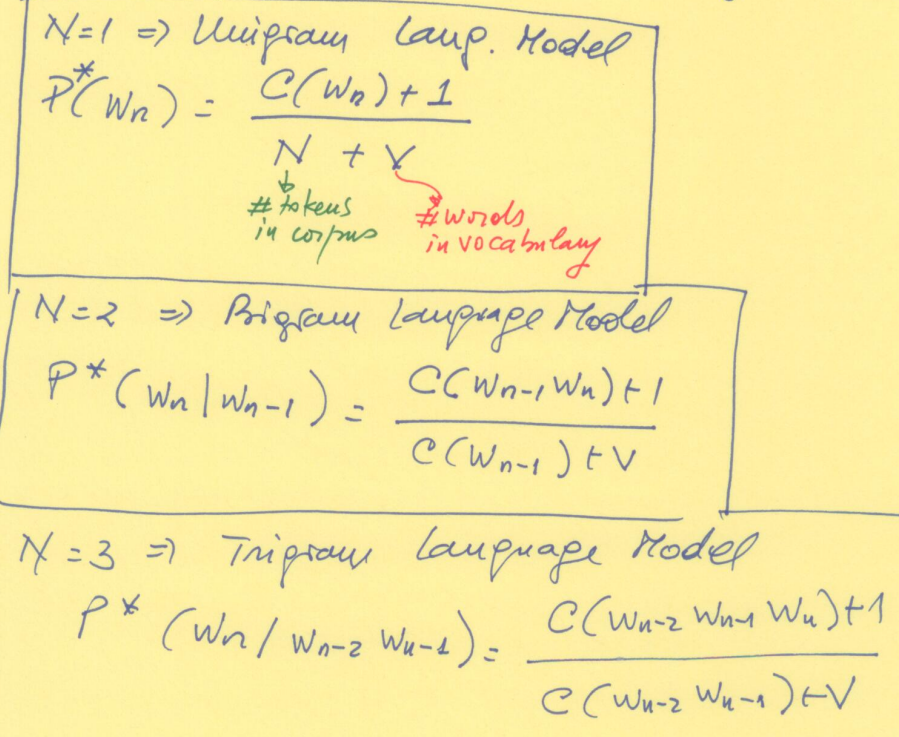 N=1 => Unigram Lang. Model
P*(Wn) = C(Wn)+1
N + V
# tokens in corpus
# words in vocabulary
N=2 => Bigram Language Model
P*(Wn|Wn-1) = C(Wn-1 Wn)+1
C(Wn-1)+V
N=3 => Trigram Language Model
P* (Wn/Wn-2 Wn-1) = C(Wn-2 Wn-1 Wn)+1
C(Wn-2 Wn-1)+V